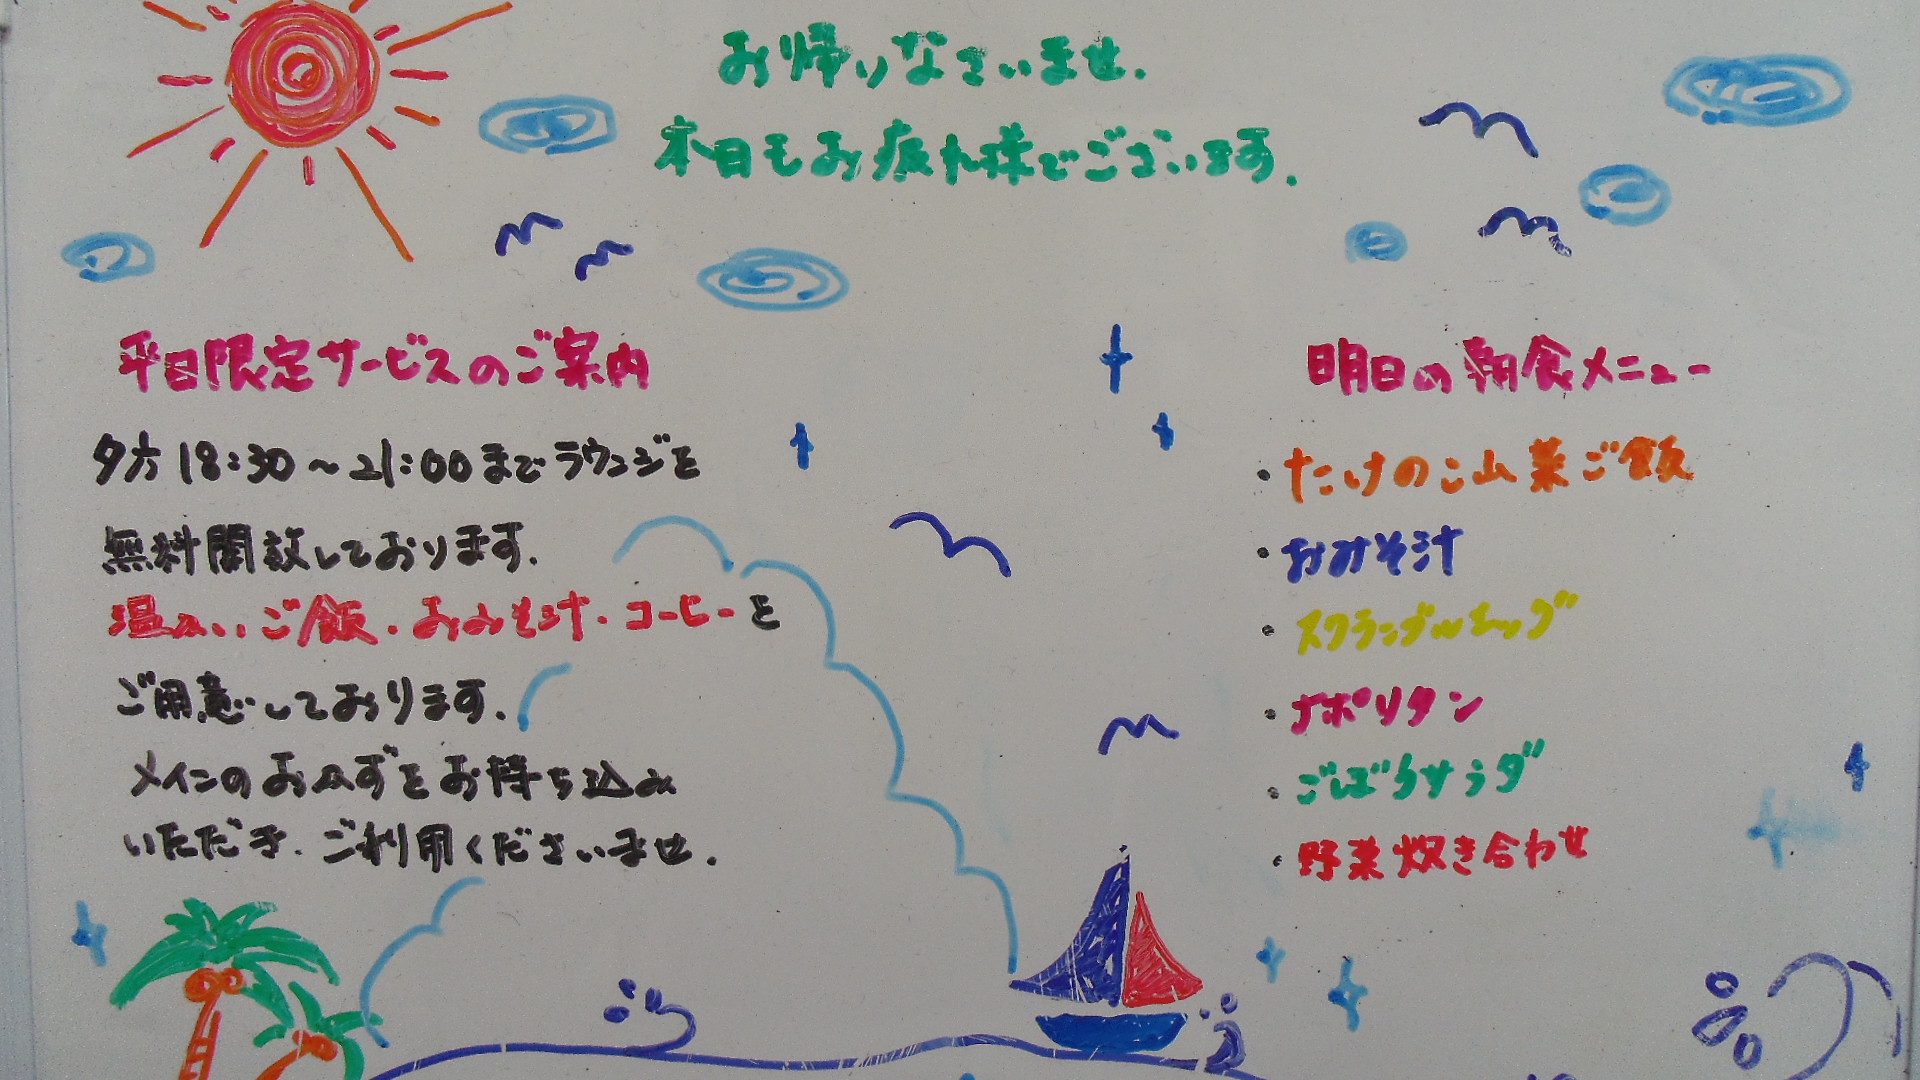 お帰りなさいませ.
本日もお疲れ様でございます.
平日限定サービスのご案内
夕方18:30〜21:00までラウンジを
無料開放しております.
温かいご飯・おみそ汁・コーヒーを
ご用意しております.
メインのおかずをお持ち込み
いただき.ご利用くださいませ.
明日の朝食メニュー
・たけのこ山菜ご飯
・おみそ汁
・スクランブルエッグ
・ナポリタン
・ごぼうサラダ
・野菜炊き合わせ